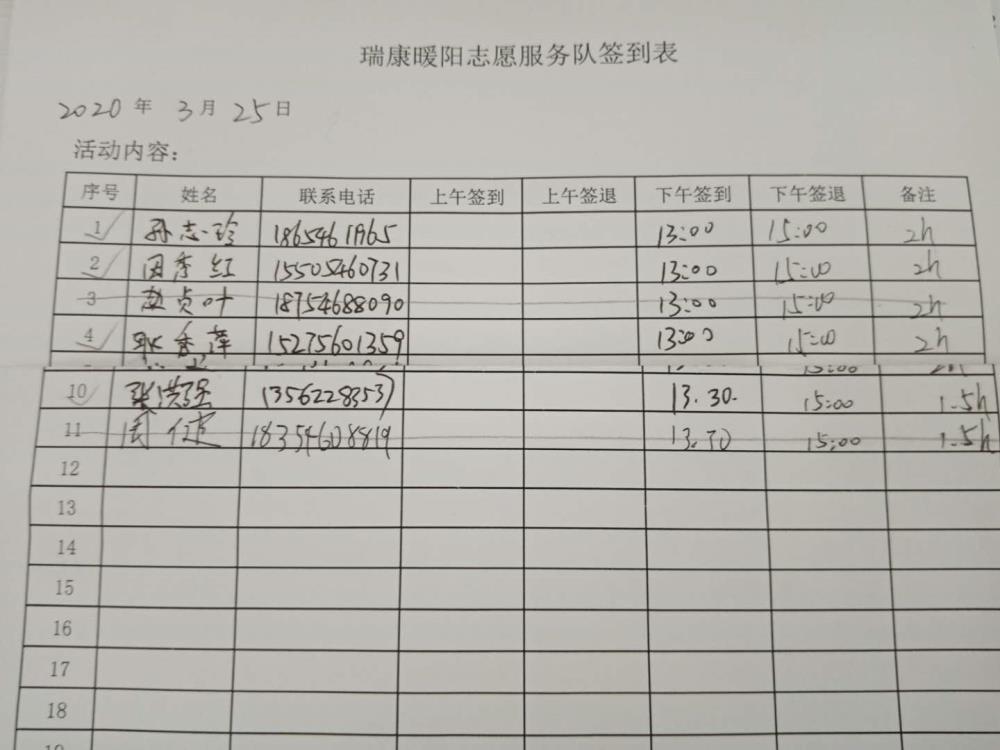 瑞康暖阳志愿服务队签到表
2020 年 3 月 25 日
活动内容：
序号 姓名 联系电话 上午签到 上午签退 下午签到 下午签退 备注
1 孙志玲 13:00 15:00 2h
2 田秀红 15505460731 13:00 15:00 2h
3 赵贞叶 18754688090 13:00 15:00 2h
4 耿秀萍 15275601359 13:00 15:00 2h
10 张洪强 13562283537 13.30. 15:00 1.5h
11 周健 18354608819 13.30 15:00 1.5h
12
13
14
15
16
17
18